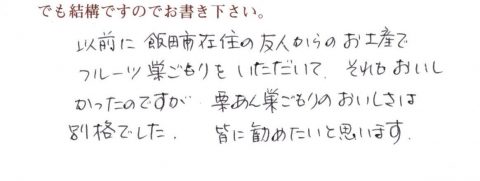 でも結構ですのでお書き下さい。
以前に飯田市在住の友人からのお土産で
フルーツ巣ごもりをいただいて、それもおいし
かったのですが 栗あん巣ごもりのおいしさは
別格でした. 皆に勧めたいと思います.